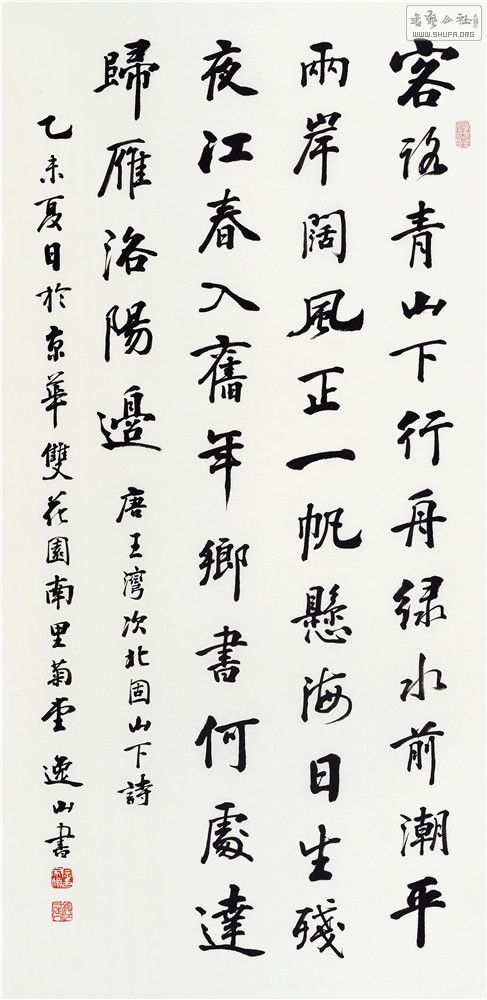 書藝公社
WWW.SHUFA.ORG
客路青山下行舟緑水前潮平
兩岸闊風正一帆懸海日生殘
夜江春入舊年鄉書何處達
歸雁洛陽邊
唐王灣次北固山下詩
乙未夏日於京華雙花園南里菊堂逸山書